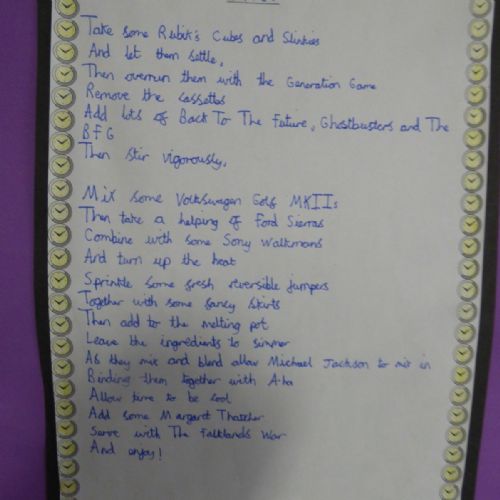 Take some Rubik's Cubes and Slinkies
And let them settle,
Then overrun them with the Generation Game
Remove the cassettes
Add lots of Back To The Future, Ghostbusters and The
BFG
Then stir vigorously.
Mix some Volkswagen Golf MKIIs
Then take a helping of Ford Sierras
Combine with some Sony Walkmans
And turn up the heat
Sprinkle some fresh reversible jumpers
Together with some fancy skirts
Then add to the melting pot
Leave the ingredients to simmer
As they mix and blend allow Michael Jackson to mix in
Binding them together with A-ha
Allow time to be cool
Add some Margaret Thatcher
Serve with The Falklands War
And enjoy!